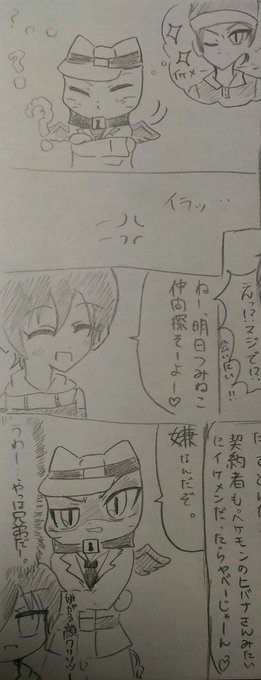 イケメン
イラッ…
えっ!?マジで!?
会いたいッ!!
ねー、明日つみねこ
仲間探そーよー♡
契約者もペケモンのヒバナさんみたい
にイケメンだったらやべーじゃーん♡
嫌なんだぞ。
うわー…やっぱ兄弟だー。
嫌がる顔